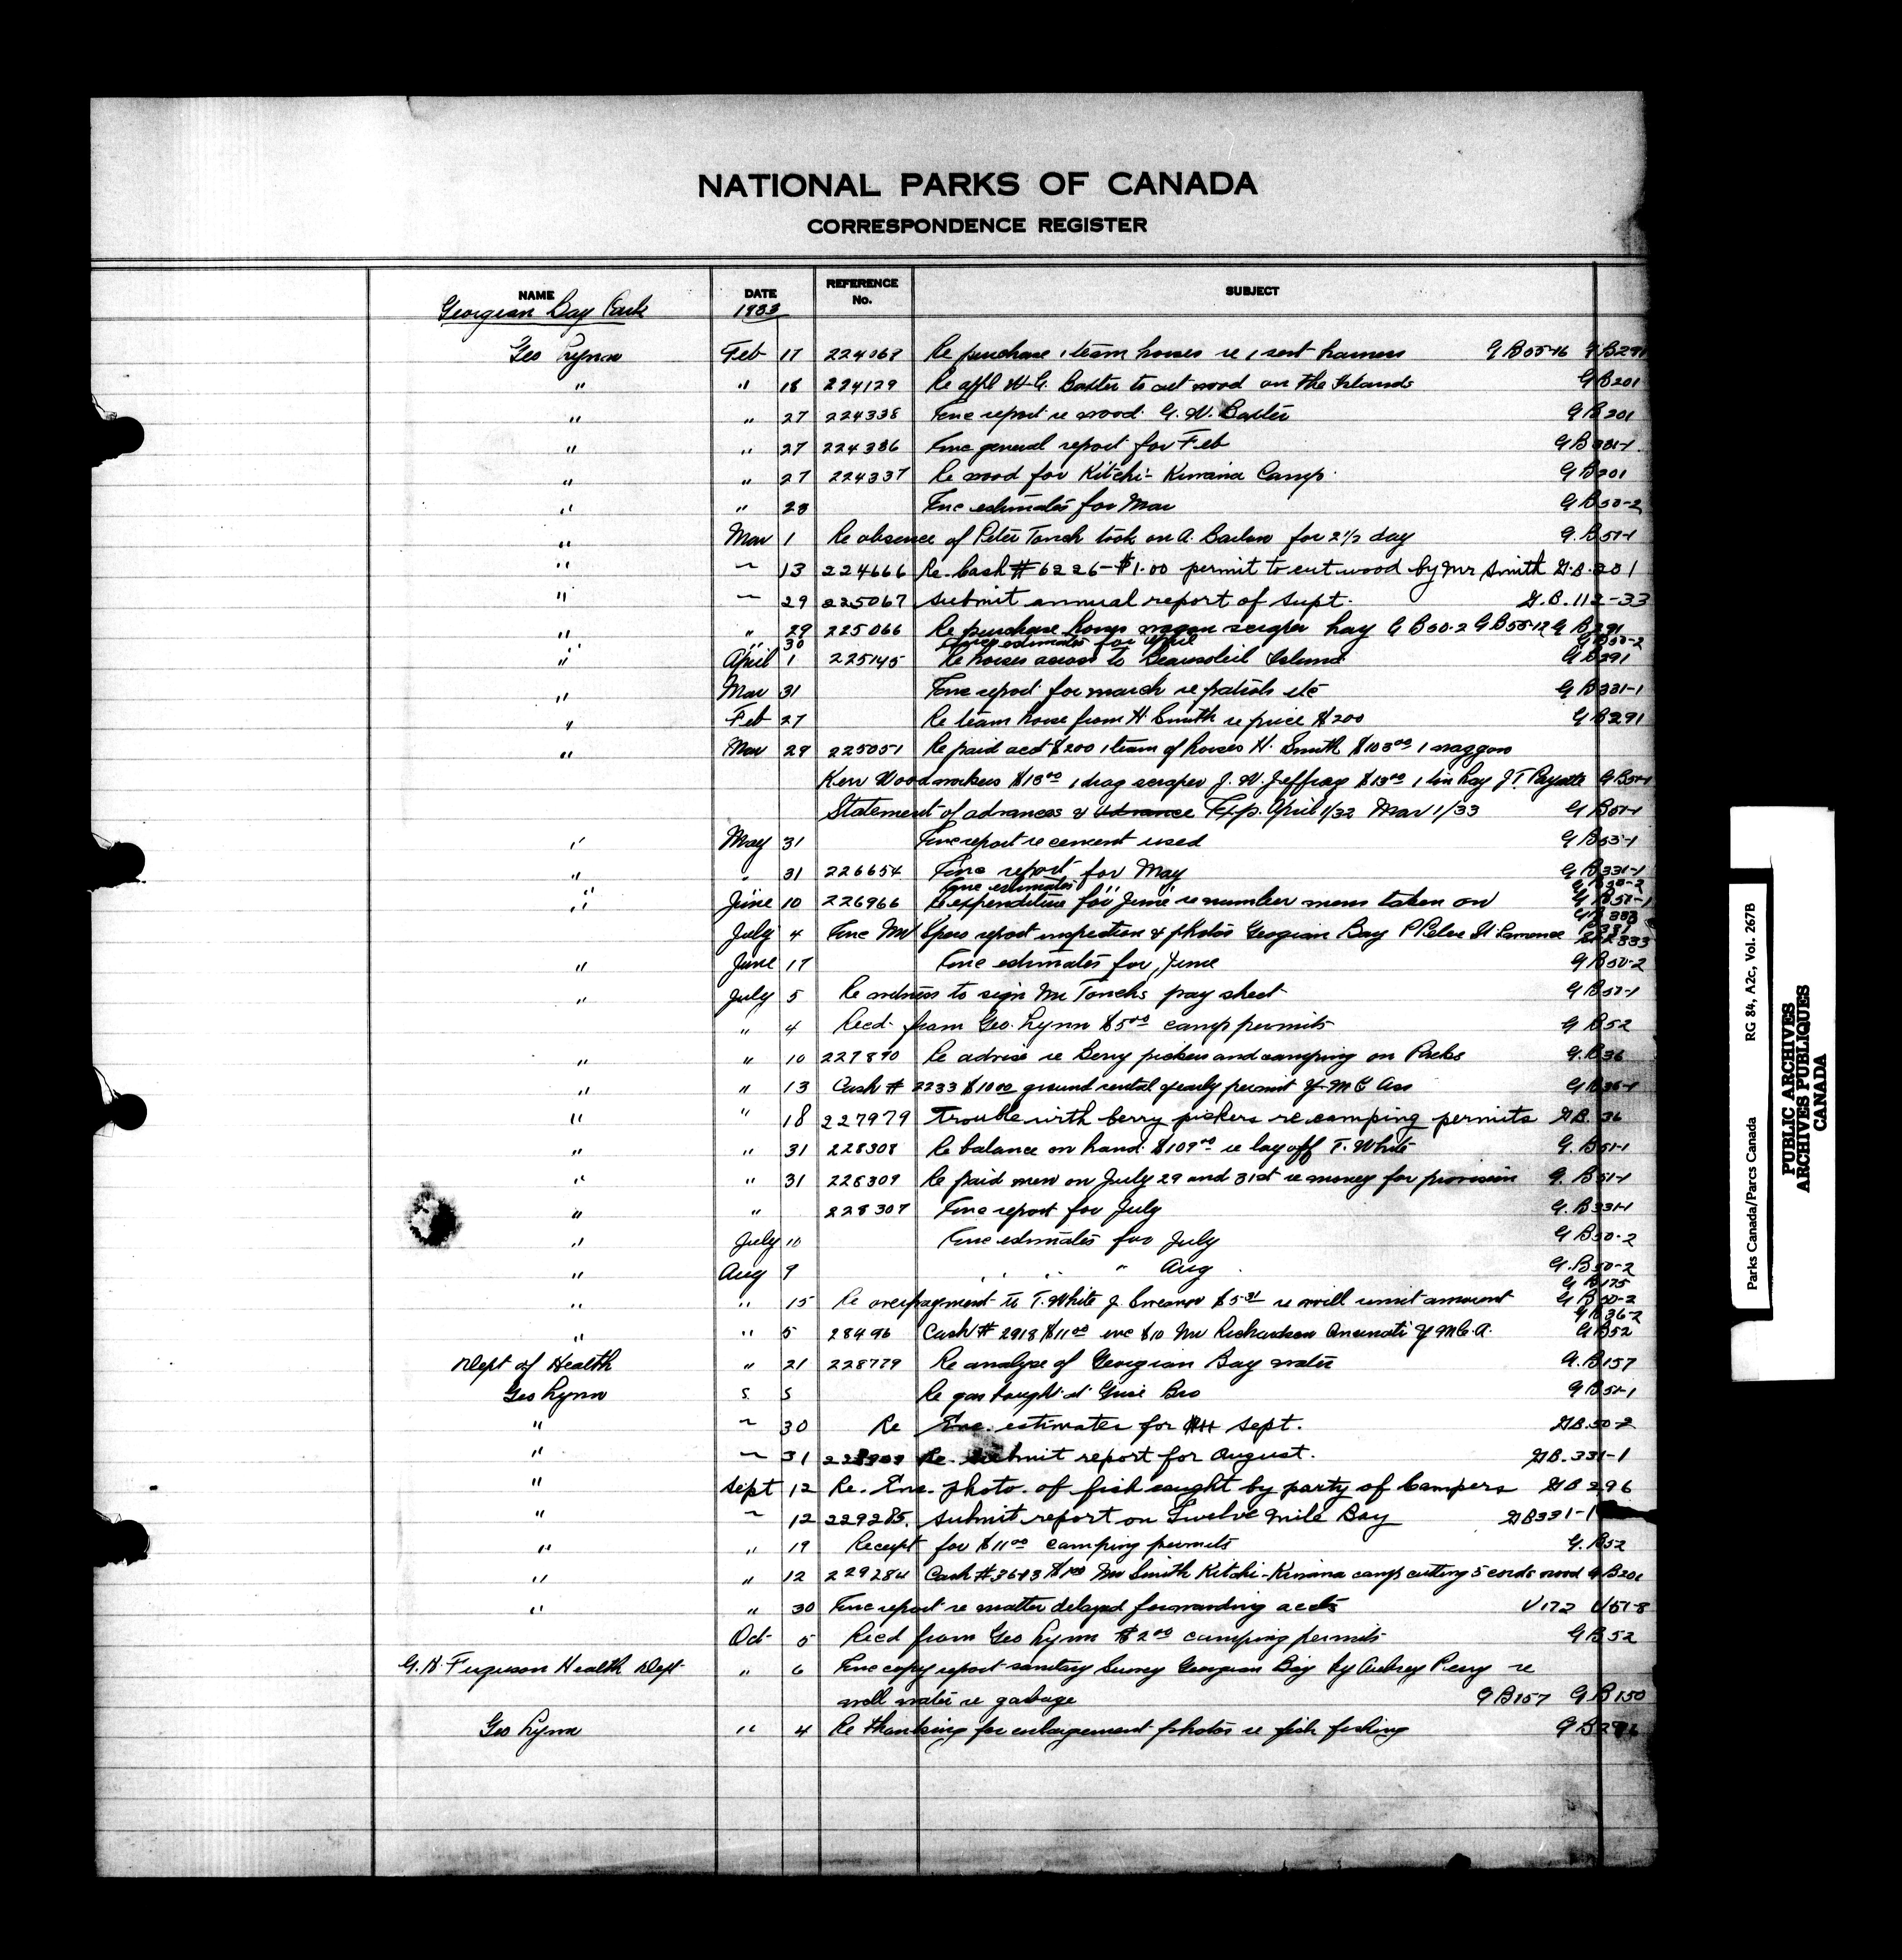 NATIONAL PARKS OF CANADA
CORRESPONDENCE REGISTER
NAME DATE REFERENCE No. SUBJECT
Georgian Bay Park 1933
Geo Lynn Feb 17 224068 Re purchase 1 team horses re 1 set harness GB55-16 GB291
" " 18 224129 Re appl W.G. Baxter to cut wood on the Islands GB201
" " 27 224338 Enc report re wood G.W. Baxter GB201
" " 27 224336 Enc general report for Feb GB331-1
" " 27 224337 Re wood for Kitchi-Kiwana Camp GB201
" " 28 Enc estimates for Mar GB50-2
" Mar 1 Re absence of Peter Tonch took on A. Barlow for 2 1/2 day G.B51-1
" " 13 224666 Re. Cash # 6226-$1.00 permit to cut wood by Mr Smith G.B.201
" " 29 225067 Submit annual report of Supt. G.B.112-33
" " 29 225066 Re purchase horses wagon scraper hay GB50-2 GB55-12 GB291
" " 30 Enc estimates for April GB50-2
" April 1 225145 Re horses across to Beausoleil Island GB291
" Mar 31 Enc report for march re patrols etc GB331-1
" Feb 27 Re team horse from H. Smith re price $200 GB291
" Mar 29 225051 Re paid acct $200 1 team of horses H. Smith $103.00 1 waggon
Kerr Woodworkers $13.00 1 drag scraper J.W. Jeffrag $13.00 1 tin hay J.T. Payette GB51-1
Statement of advances & Exp. April 1/32 Mar 1/33 GB51-1
" May 31 Enc report re cement used GB55-1
" " 31 226654 Enc report for May GB331-1
" " Enc estimates " " GB50-2
" June 10 226966 Re expenditure for June re number mens taken on GB51-1
July 4 Enc Mr Spero report inspection & photos Georgian Bay P Pelee St Lawrence GB333
" June 17 Enc estimates for June GB50-2
" July 5 Re witness to sign Mr Tonchs pay sheet GB51-1
" 4 Recd. from Geo. Lynn $5.00 camp permits GB52
" " 10 227890 Re advise re Berry pickers and camping on Parks G.B36
" " 13 Cash # 2233 $10.00 ground rental yearly permit Y.M.C Ass GB36-1
" " 18 227979 Trouble with berry pickers re camping permits G.B. 36
" " 31 228308 Re balance on hand $109.00 re lay off T. White G.B51-1
" " 31 228309 Re paid men on July 29 and 31st re money for provision G.B51-1
" " 228307 Enc report for July G.B331-1
" July 10 Enc estimates for July GB50-2
" Aug 9 " " " Aug G.B50-2
GB175
" " 15 Re overpayment to T. White J. $5.31 re will remit amount GB50-2
GB36-2
" " 5 28496 Cash # 2918 $11.00 enc $10 Mr Richardson Cincinati Y.M.C.A. GB52
Dept of Health " 21 228779 Re analyse of Georgian Bay water G.B157
Geo Lynn S S Re gas bought at Bro GB51-1
" " 30 Re Enc. estimates for Sept. G.B.50-2
" " 31 228909 Re. Submit report for August. GB.331-1
" Sept 12 Re. Enc. photo. of fish caught by party of Campers GB 296
" " 12 229285. Submit report on Twelve Mile Bay GB331-1
" " 19 Receipt for $11.00 camping permits G.B52
" " 12 229284 Cash #3643 $1.00 Mr Smith Kitchi-Kiwana camp cutting 5 cords wood GB201
" " 30 Enc report re matter delayed forwarding accts U172 U51-8
Oct 5 Recd from Geo Lynn $2.00 camping permits GB52
G.H. Ferguson Health Dept " 6 Enc copy report sanitary Survey Georgian Bay by Aubrey Perry re
well water re garbage GB157 GB150
Geo Lynn " 4 Re thanking for enlargement photos re fish fishing GB296
Parks Canada/Parcs Canada RG 84, A2c, Vol. 267B
PUBLIC ARCHIVES
ARCHIVES PUBLIQUES
CANADA